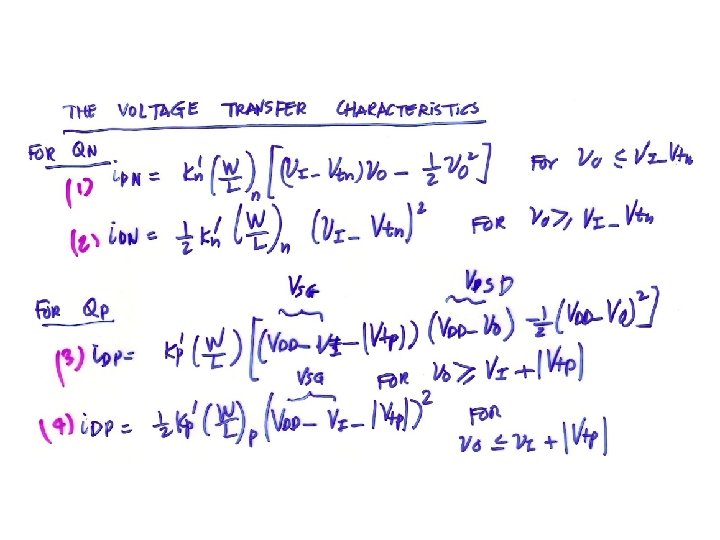 THE VOLTAGE TRANSFER CHARACTERISTICS
FOR QN
(1) iDN = Kn' (W/L)n [(VI - Vtn) VO - 1/2 VO²] For VO ≤ VI - Vtn
(2) iDN = 1/2 Kn' (W/L)n (VI - Vtn)² FOR VO ≥ VI - Vtn
VSG VSD
FOR QP
(3) iDP = Kp' (W/L) [(VDD - VI - |Vtp|) (VDD - VO) - 1/2 (VDD - VO)²]
VSG FOR VO ≥ VI + |Vtp|
(4) iDP = 1/2 Kp' (W/L)p (VDD - VI - |Vtp|)² FOR
VO ≤ VI + |Vtp|